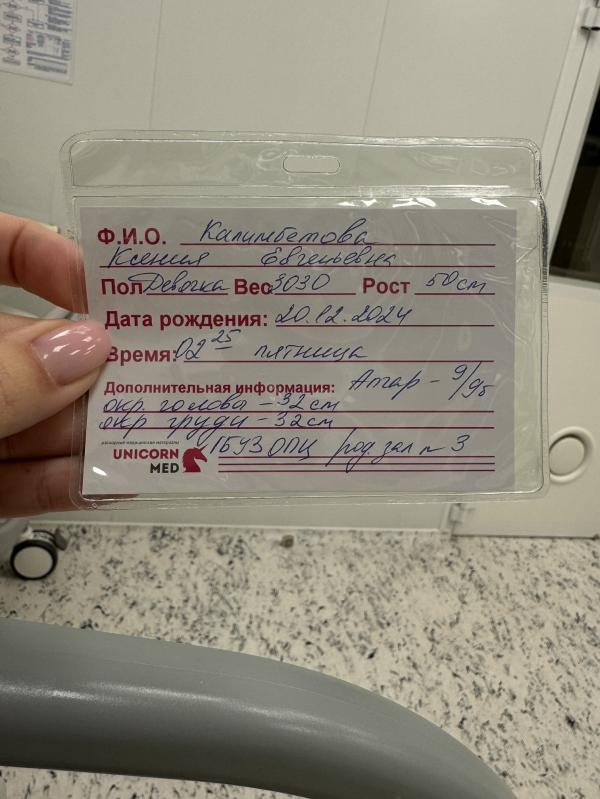 Ф.И.О. Калимбетова
Ксения Евгеньевна
Пол Девочка Вес 3030 Рост 50 см
Дата рождения: 20.12.2024
Время: 02 25 пятница
Дополнительная информация: Апгар - 9/9б
окр. голова - 32 см
окр груди - 32 см
расходные медицинские материалы
ГБУЗ ОПЦ род. зал n 3
UNICORN
MED